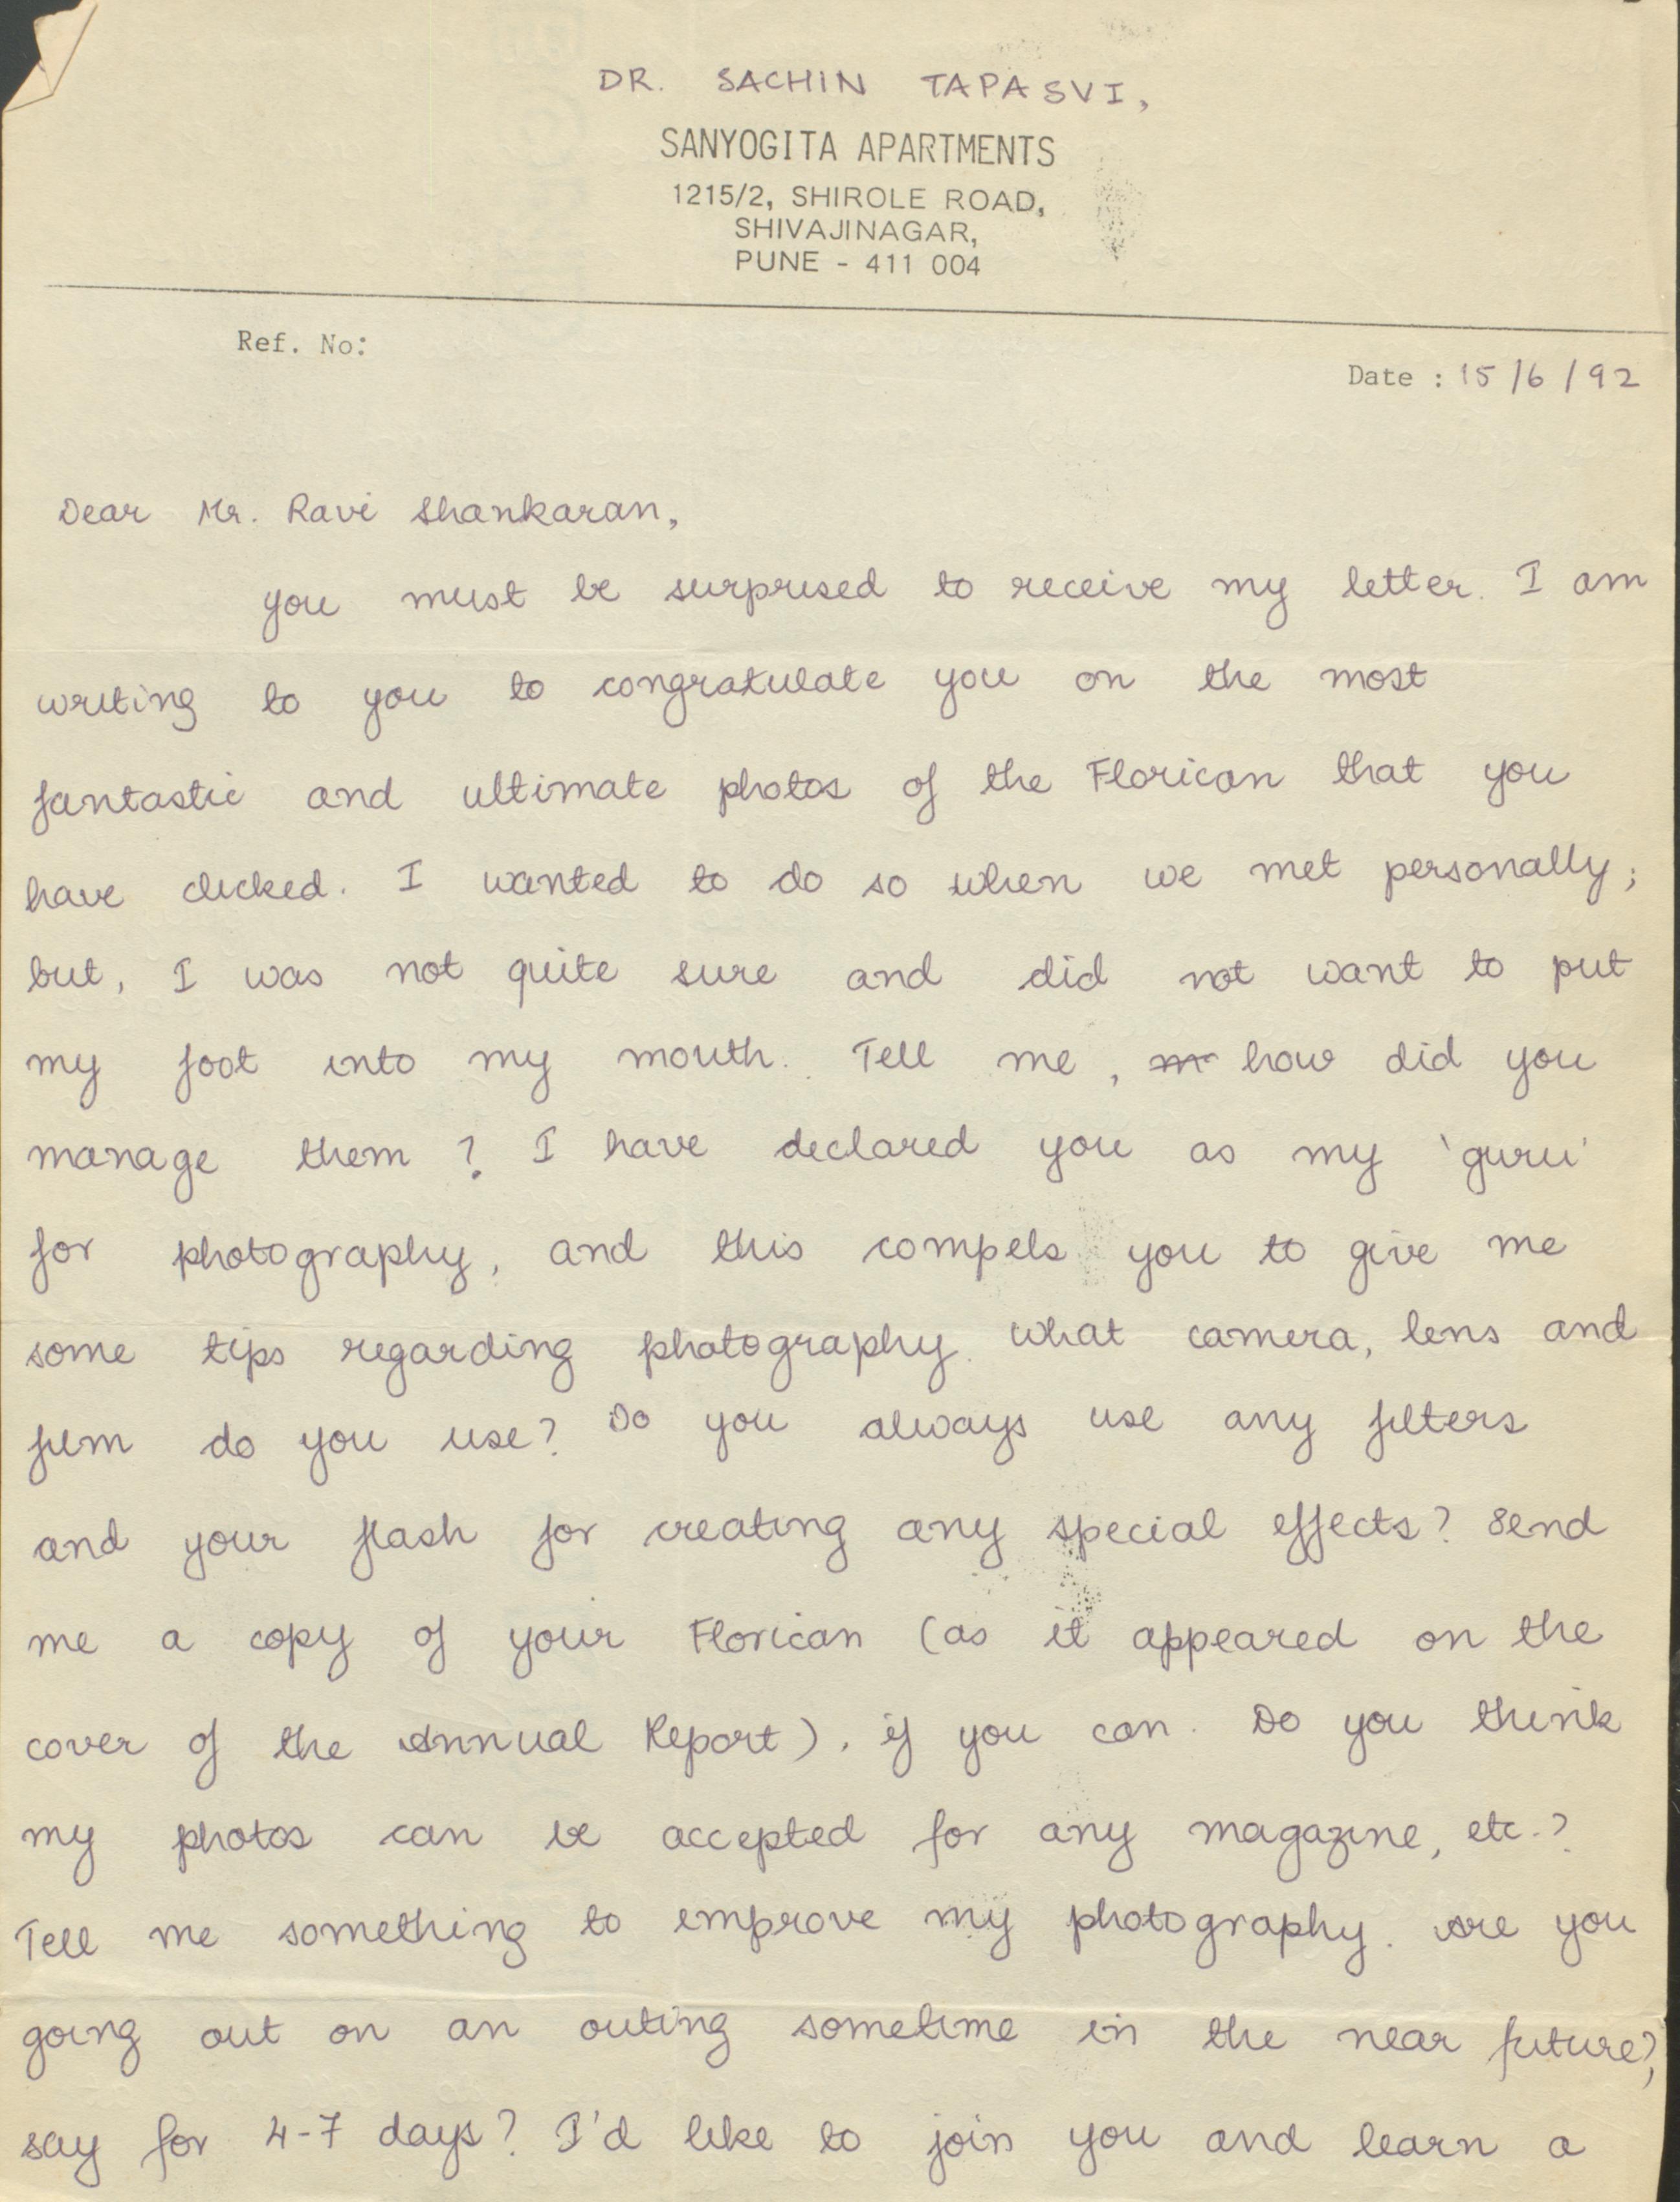 DR. SACHIN TAPASVI,
SANYOGITA APARTMENTS
1215/2, SHIROLE ROAD,
SHIVAJINAGAR,
PUNE - 411 004
Ref. No:
Date : 15/6/92
Dear Mr. Ravi Shankaran,
you must be surprised to receive my letter. I am
writing to you to congratulate you on the most
fantastic and ultimate photos of the Florican that you
have clicked. I wanted to do so when we met personally;
but, I was not quite sure and did not want to put
my foot into my mouth. Tell me, how did you
manage them? I have declared you as my 'guru'
for photography, and this compels you to give me
some tips regarding photography. What camera, lens and
film do you use? Do you always use any filters
and your flash for creating any special effects? Send
me a copy of your Florican (as it appeared on the
cover of the Annual Report), if you can. Do you think
my photos can be accepted for any magazine, etc.?
Tell me something to improve my photography. Are you
going out on an outing sometime in the near future?,
say for 4-7 days? I'd like to join you and learn a